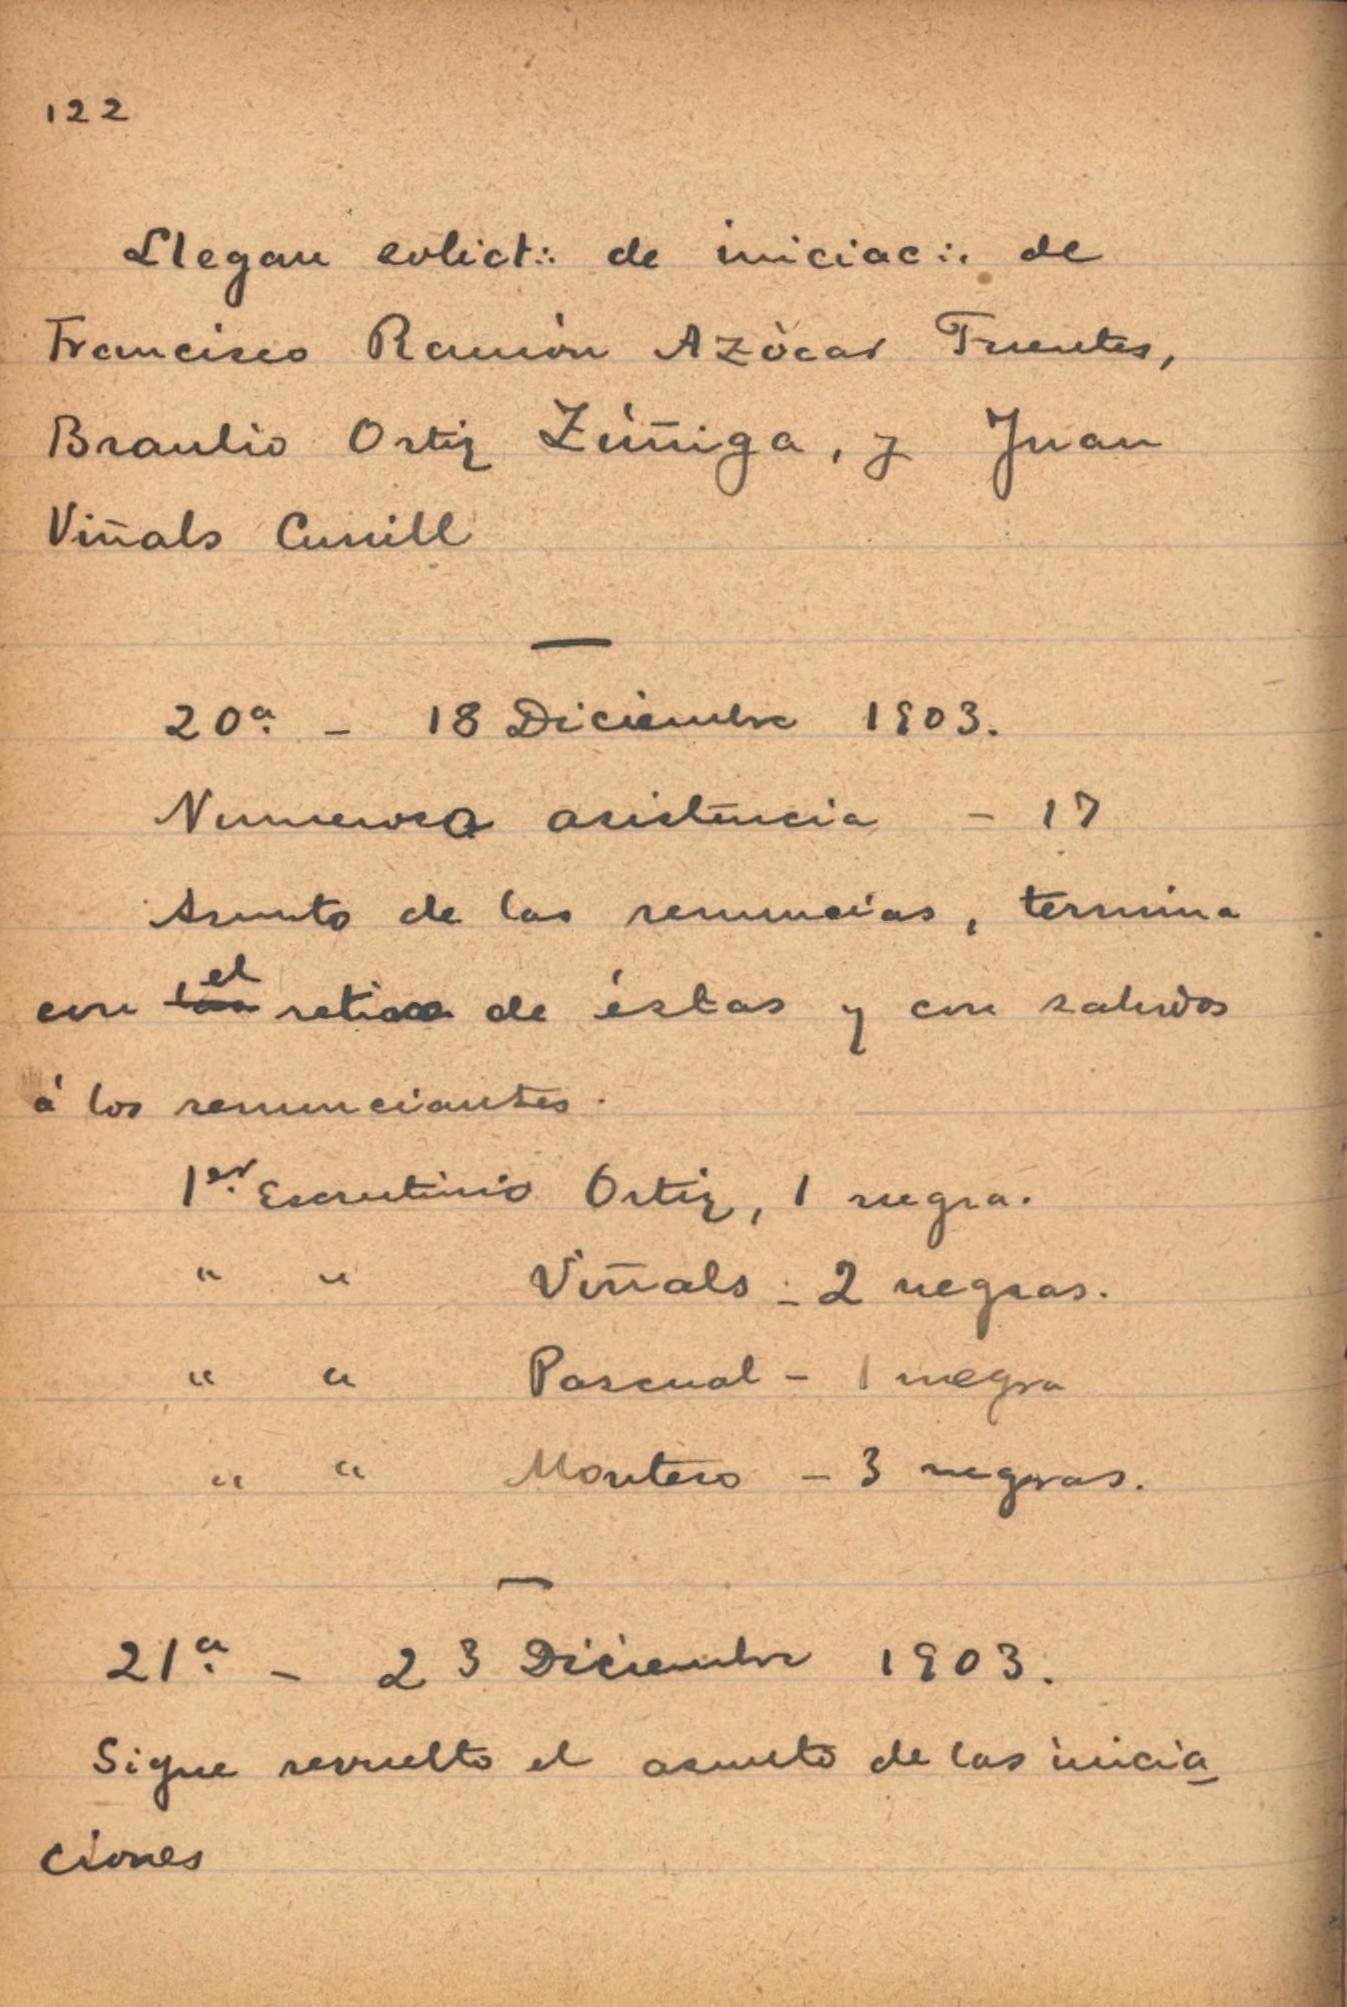 122
Llegan solict∴ de iniciac∴ de
Francisco Ramón Azócar Fuentes,
Braulio Ortiz Zúñiga, y Juan
Viñals Cunill
20a. - 18 Diciembre 1903.
Numerosa asistencia - 17
Asunto de las renuncias, termina
con el retiro de éstas y con saludos
á los renunciantes.
1er. Escrutinio Ortiz, 1 negra.
" " Viñals - 2 negras.
" " Pascual - 1 negra
" " Montero - 3 negras.
21a. - 23 Diciembre 1903.
Sigue revuelto el asunto de las inicia
ciones